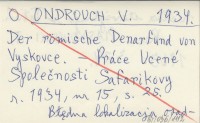 O ONDROUCH V. 1934.
Der römische Denarfund von
Vyskovce. – Práce Učené
Společnosti Šafaříkovy
r. 1934, nr 15, s. 25.
Błędna lokalizacja